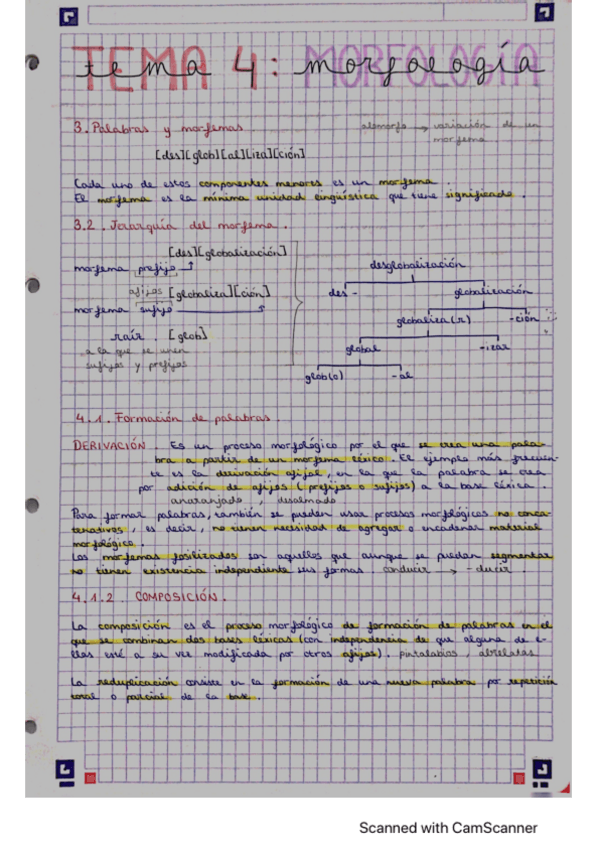 TEMA 4: MORFOLOGÍA
tema 4: morfología
3. Palabras y morfemas
alomorfo → variación de un
morfema
[des][glob][al][iza][ción]
Cada uno de estos componentes menores es un morfema.
El morfema es la mínima unidad lingüística que tiene significado.
3.2. Jerarquía del morfema.
[des][globalización]
morfema prefijo
afijos [globaliza][ción]
morfema sufijo
raíz. [glob]
a la que se unen
sufijos y prefijos
desglobalización
des - globalización
globaliza(r) -ción
global -izar
glob(o) -al
4.1. Formación de palabras.
DERIVACIÓN. Es un proceso morfológico por el que se crea una pala-
bra a partir de un morfema léxico. El ejemplo más frecuen-
te es la derivación afijal, en la que la palabra se crea
por adición de afijos (prefijos o sufijos) a la base léxica.
anaranjado, desalmado
Para formar palabras, también se pueden usar procesos morfológicos no conca-
tenativos, es decir, no tienen necesidad de agregar o encadenar material
morfológico.
Los morfemas fosilizados son aquellos que aunque se puedan segmentar
no tienen existencia independiente sus formas. conducir → -ducir.
4.1.2 COMPOSICIÓN.
La composición es el proceso morfológico de formación de palabras en el
que se combinan dos bases léxicas (con independencia de que alguna de e-
llas esté a su vez modificada por otros afijos). pintalabios, abrelatas
La reduplicación consiste en la formación de una nueva palabra por repetición
total o parcial de la base.
Scanned with CamScanner